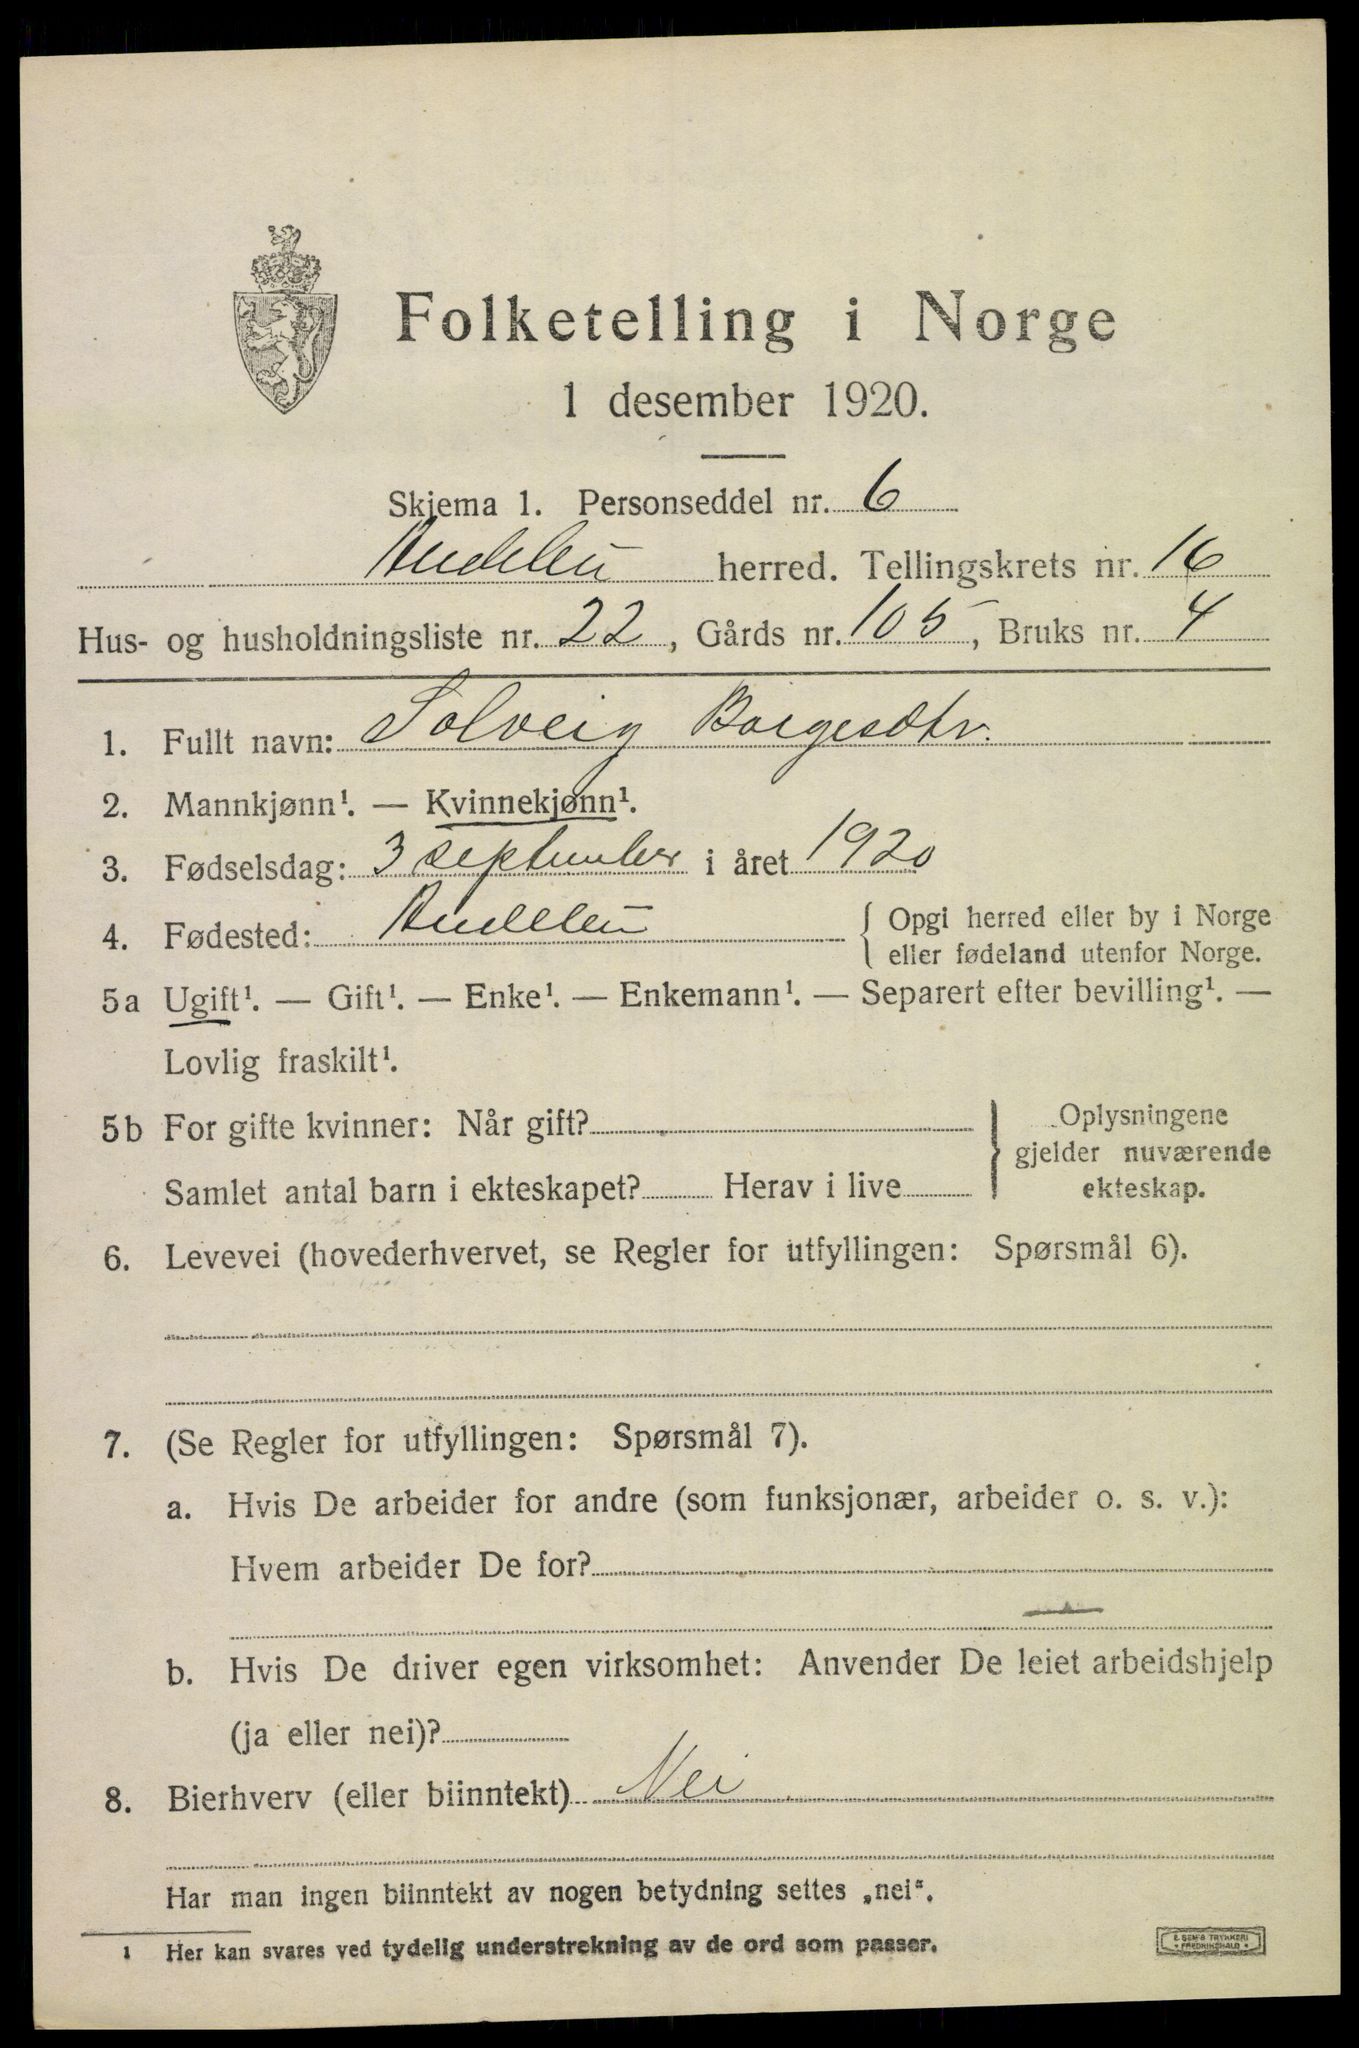 Folketelling i Norge
1 desember 1920.
Skjema 1. Personseddel nr. 6
Andebu herred. Tellingskrets nr. 16
Hus- og husholdningsliste nr. 22, Gårds nr. 105, Bruks nr. 4
1. Fullt navn: Solveig Borgesdtr.
2. Mannkjønn¹. — Kvinnekjønn¹.
3. Fødselsdag: 3 september i året 1920
4. Fødested: Andebu { Opgi herred eller by i Norge
eller fødeland utenfor Norge.
5a Ugift¹. — Gift¹. — Enke¹. — Enkemann¹. — Separert efter bevilling¹. —
Lovlig fraskilt¹.
5b For gifte kvinner: Når gift?
Samlet antal barn i ekteskapet? Herav i live
} Oplysningene
gjelder nuværende
ekteskap.
6. Levevei (hovederhvervet, se Regler for utfyllingen: Spørsmål 6).
7. (Se Regler for utfyllingen: Spørsmål 7).
a. Hvis De arbeider for andre (som funksjonær, arbeider o. s. v.):
Hvem arbeider De for?
b. Hvis De driver egen virksomhet: Anvender De leiet arbeidshjelp
(ja eller nei)?
8. Bierhverv (eller biinntekt) Nei
Har man ingen biinntekt av nogen betydning settes „nei“.
1 Her kan svares ved tydelig understrekning av de ord som passer.
E SEM'S TRYKKERI
• FREDRIKSHALD •